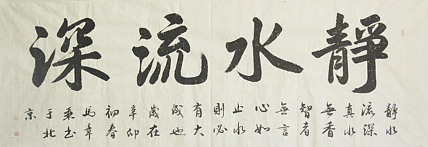 靜水流深
靜水
流深
真水
無香
智者
無言
心如
止水
則必
有大
成也
歲在
辛卯
初春
於北
京